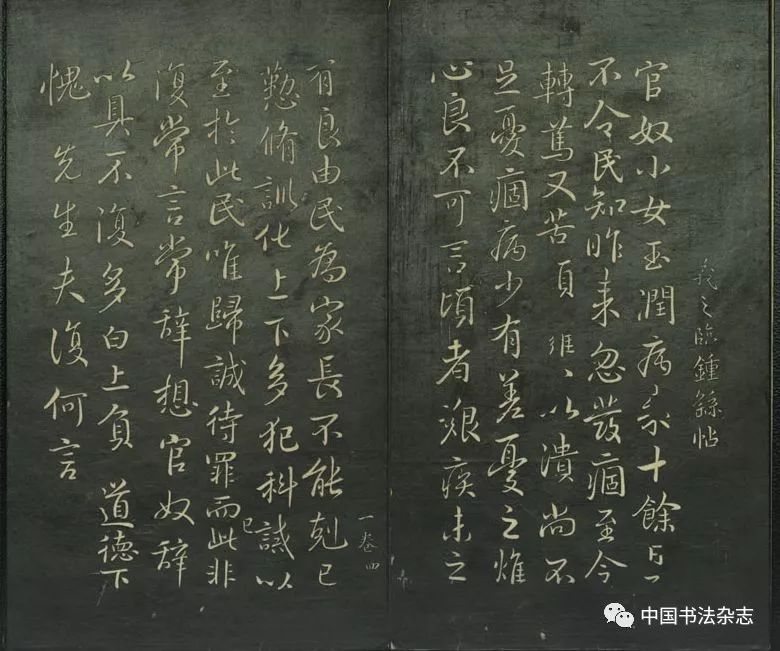 羲之臨鍾繇帖
官奴小女玉潤病來十餘日
不令民知昨來忽發痼至今
轉篤又苦頭 維、以潰尚不
足憂痼病少有差憂之燋
心良不可言頃者艱疾未之
有良由民為家長不能剋己
懃脩訓化上下多犯科誡以
至於此民唯歸誠待罪而此非
復常言常辭想官奴辭
以具不復多白上負 道德下
愧 先生夫復何言
一卷四
已
中国书法杂志